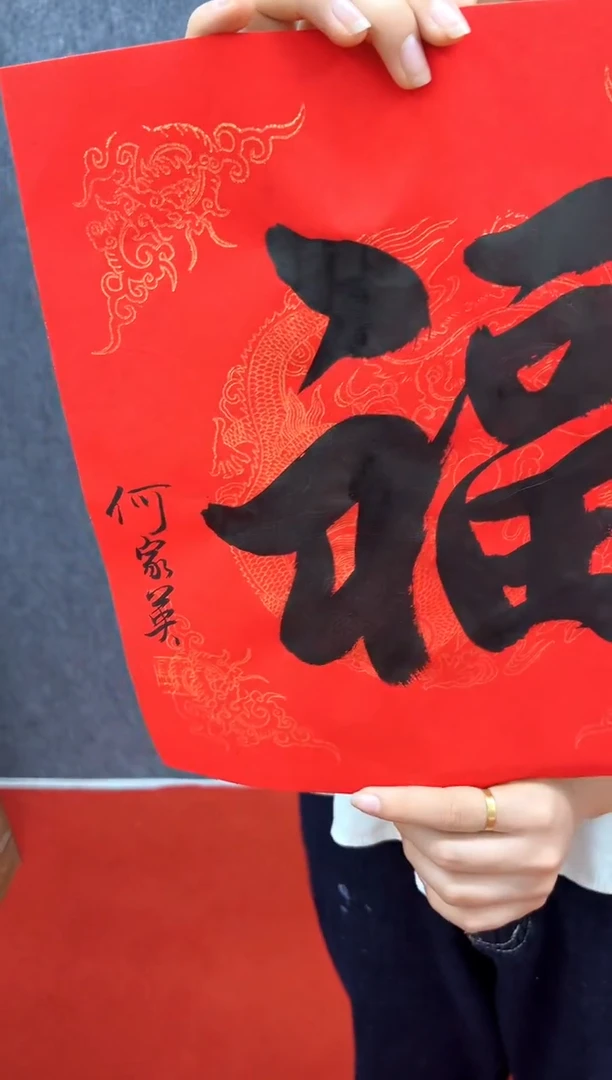 福
何家英